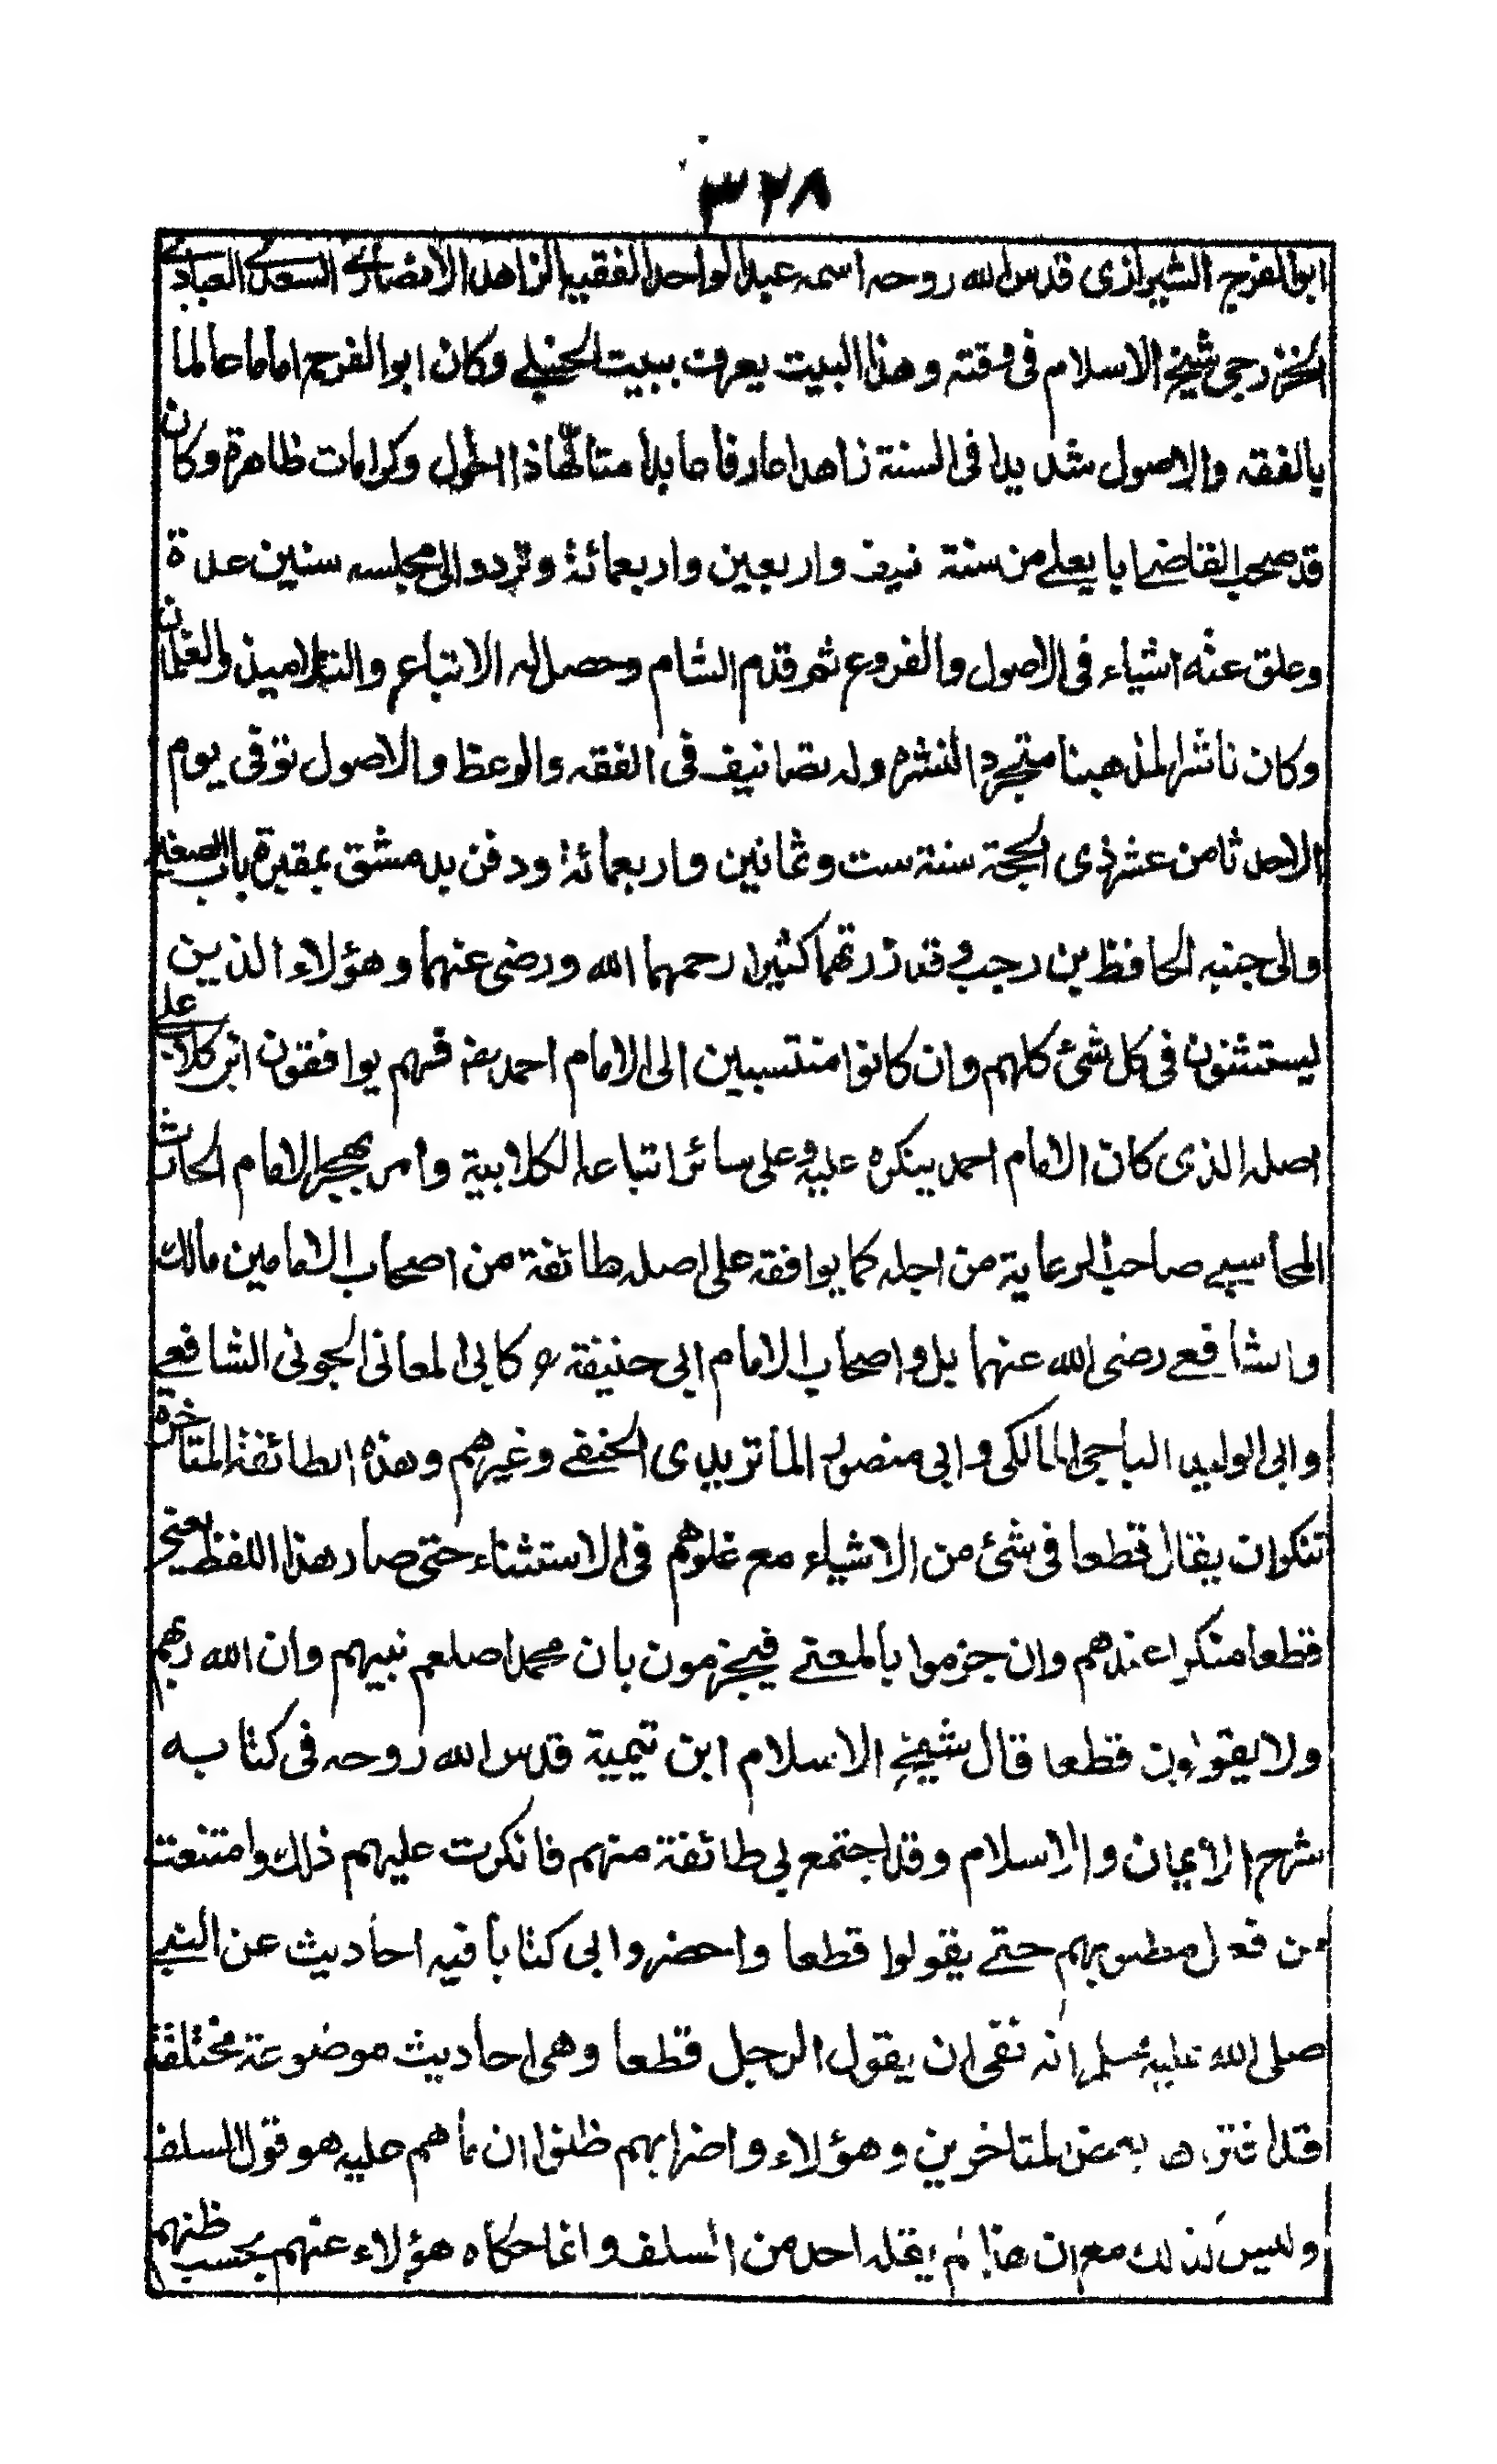 ٣٢٨
ابو الفرج الشيرازى قدس الله روحه اسمه عبد الواحد الفقيه الزاهد الانصارى السعدى العبادى
الخزرجى شيخ الاسلام فى وقته وهذا البيت يعرف ببيت الحنبلى وكان ابو الفرج اماما عالما
بالفقه والاصول شديدا فى السنة زاهدا عارفا عابدا متألها ذا احوال وكرامات ظاهرة وكان
قد صحب القاضى ابا يعلى من سنة نيف واربعين واربعمائة وتردد الى مجلسه سنين عدة
وعلق عنه اشياء فى الاصول والفروع ثم قدم الشام وحصل له الاتباع والتلاميذ والغلمان
وكان ناشرا لمذهبنا متجردا لنشره وله تصانيف فى الفقه والوعظ والاصول توفى يوم
الاحد ثامن عشر ذى الحجة سنة ست وثمانين واربعمائة ودفن بدمشق بمقبرة باب الصغير
والى جنبه الحافظ بن رجب وقد زرتهما كثيرا رحمهما الله ورضى عنهما وهؤلاء الذين
يستثنون فى كل شئ كلهم وان كانوا منتسبين الى الامام احمد رضـ فهم يوافقون ابن كلاب على
اصله الذى كان الامام احمد ينكره عليه وعلى سائر اتباعه الكلابية وامر بهجر الامام الحارث
المحاسبى صاحب الرعاية من اجله كما يوافقه على اصله طائفة من اصحاب الامامين مالك
والشافعى رضى الله عنهما بل واصحاب الامام ابى حنيفة رح كابى المعانى الجونى الشافعى
وابى الوليد الباجى المالكى وابى منصور الماتريدى الحنفى وغيرهم وهذه الطائفة المتاخرة
تنكر ان يقال قطعا فى شئ من الاشياء مع غلوهم فى الاستثناء حتى صار هذا اللفظ يعنى
قطعا منكرا عندهم وان جزموا بالمعنى فيجزمون بان محمدا صلعم نبيهم وان الله ربهم
ولا يقولون قطعا قال شيخ الاسلام ابن تيمية قدس الله روحه فى كتابه
شرح الايمان والاسلام وقد اجتمع بى طائفة منهم فانكرت عليهم ذلك وامتنعت
من فعل مطلوبهم حتى يقولوا قطعا واحضروا لى كتابا فيه احاديث عن النبى
صلى الله عليه وسلم انه نهى ان يقول الرجل قطعا وهى احاديث موضوعة مختلقة
قد افتراها بعض المتاخرين وهؤلاء واضرابهم ظنوا ان ما هم عليه هو قول السلف
وليس كذلك مع ان هذا لم يقله احد من السلف وانما حكاه هؤلاء عنهم بحسب ظنهم